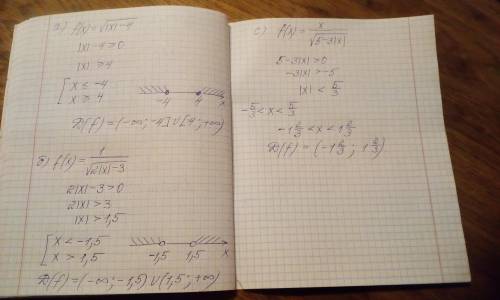 a) f(x) = √|x|-4
|x|-4≥0
|x|≥4
[ x ≤ -4
x ≥ 4
-4 4 x
D(f) = (-∞; -4] ∪ [4; +∞)
б) f(x) = 1/√2|x|-3
2|x|-3>0
2|x|>3
|x|>1,5
[ x < -1,5
x > 1,5
-1,5 1,5 x
D(f) = (-∞; -1,5) ∪ (1,5; +∞)
c) f(x) = x/√5-3|x|
5-3|x|>0
-3|x|>-5
|x| < 5/3
-5/3 < x < 5/3
-1 2/3 < x < 1 2/3
D(f) = (-1 2/3; 1 2/3)